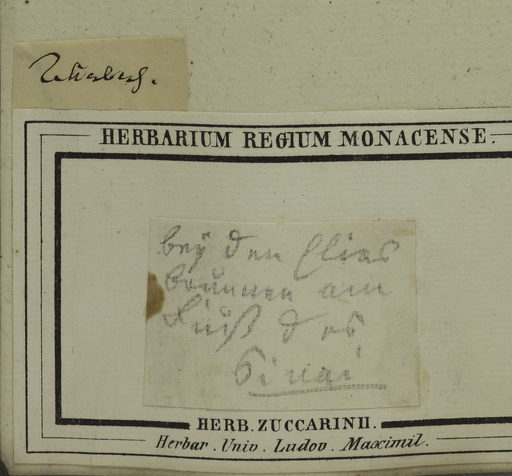 HERBARIUM REGIUM MONACENSE.
beÿ den Elias
brunnen am
Fuß des
Sinai
HERB. ZUCCARINII.
Herbar. Univ. Ludov. Maximil.